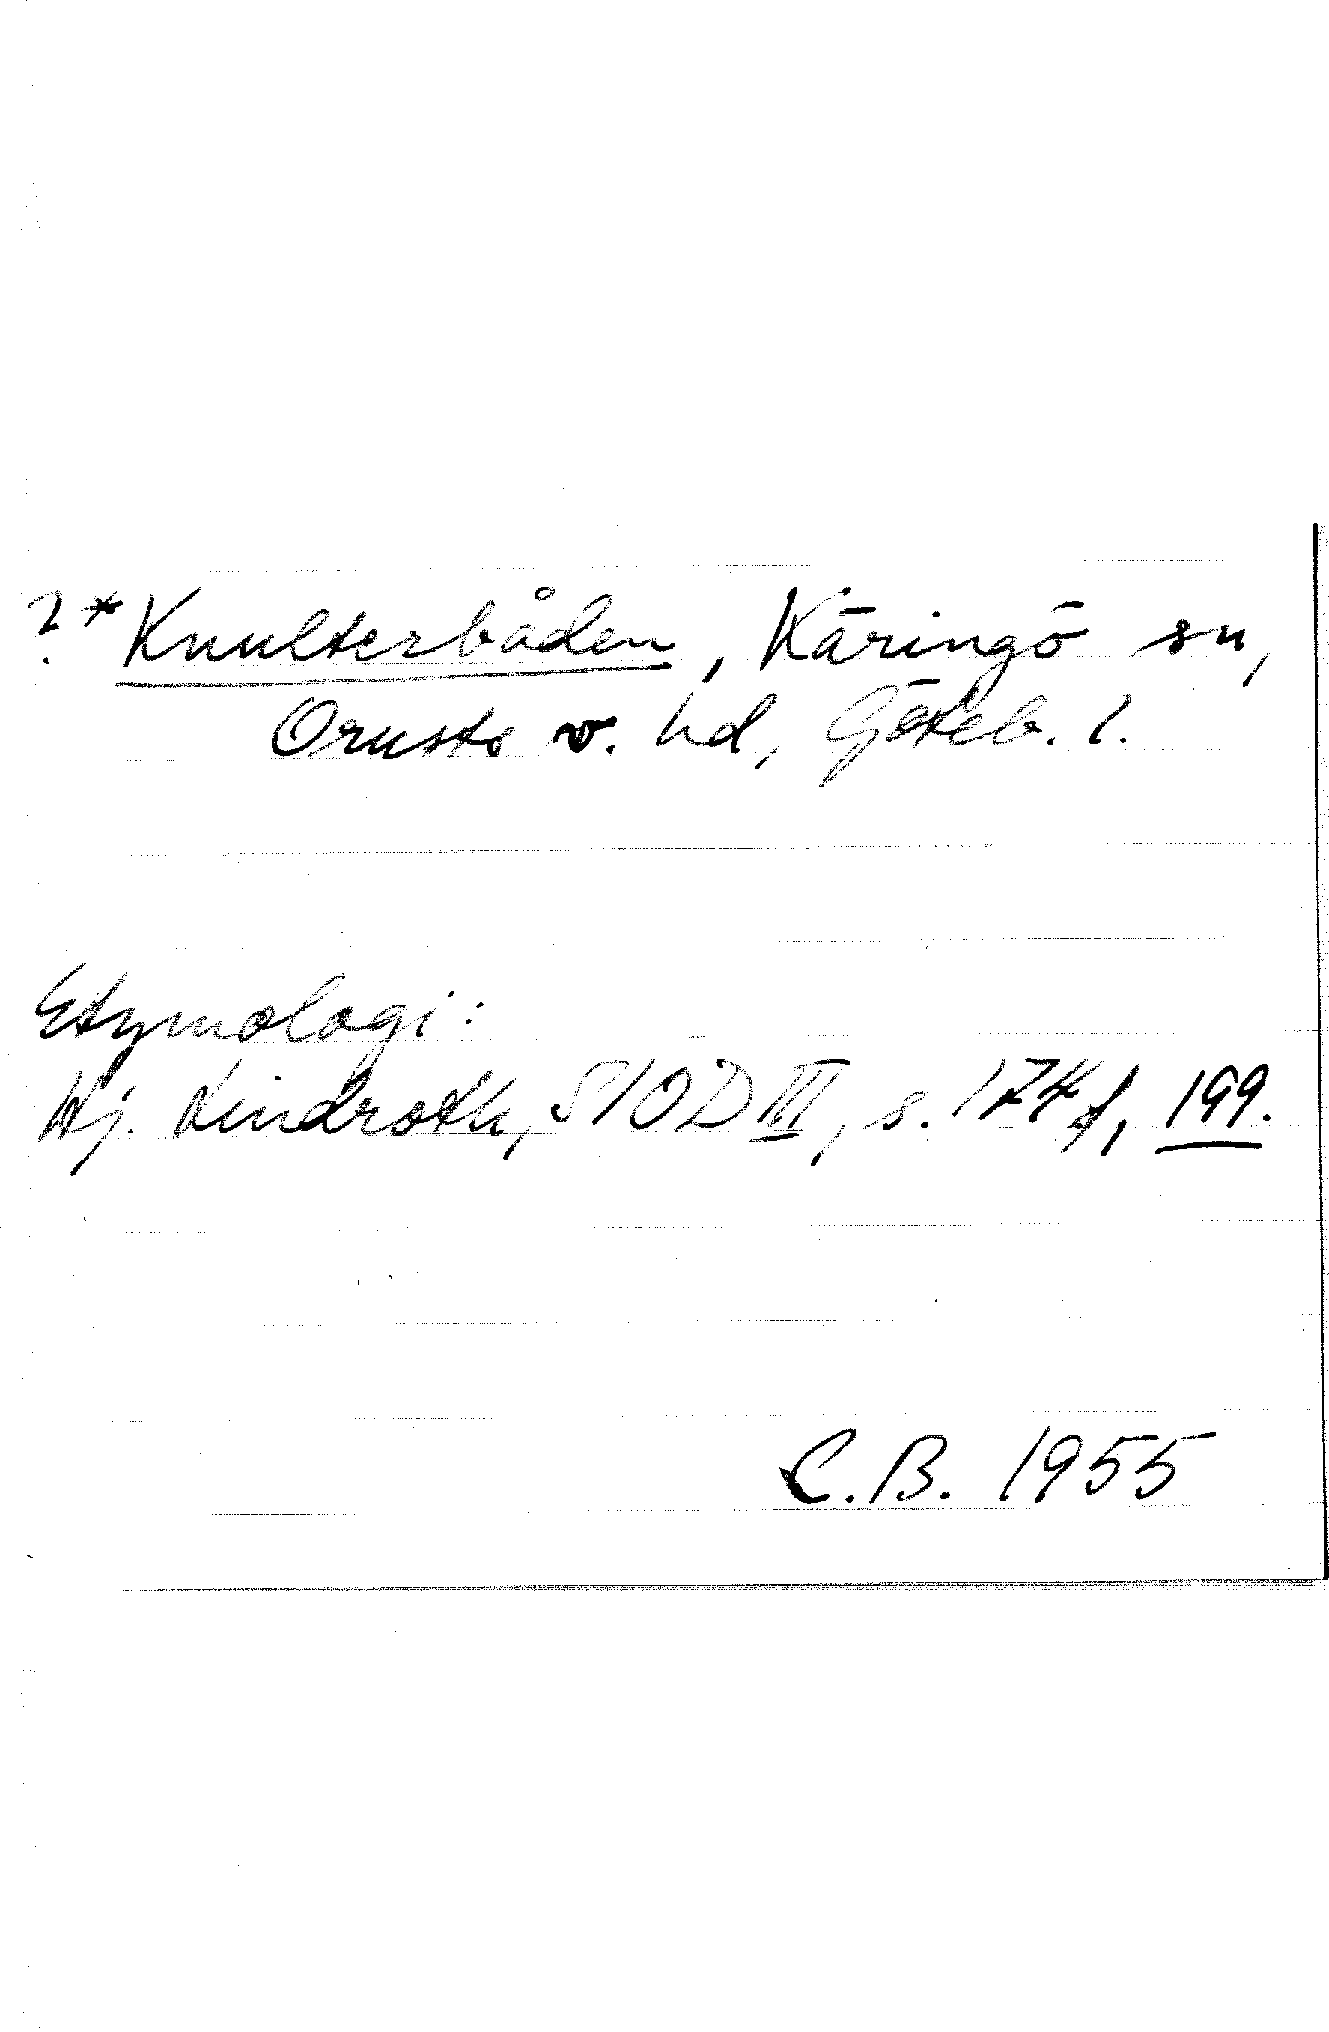 ? * Knulterbåden, Käringö sn,
Orusts v. hd, Göteb. l.
Etymologi:
Hj. Lindroth, SIOD III, s. 174 f, 199.
C.B. 1955